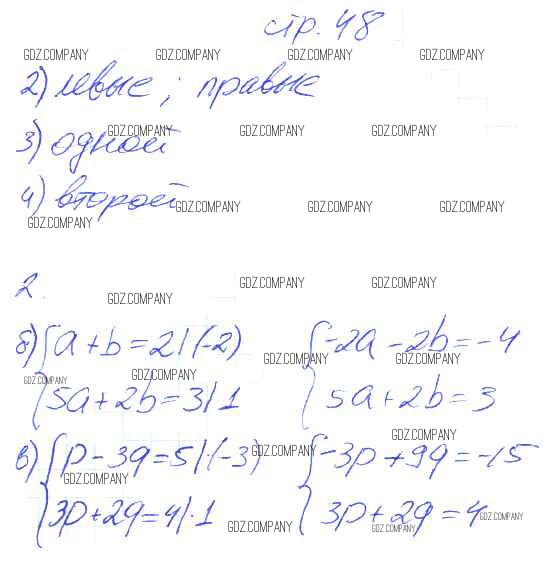 стр. 48
GDZ.COMPANY GDZ.COMPANY GDZ.COMPANY GDZ.COMPANY
2) левые; правые
GDZ.COMPANY GDZ.COMPANY GDZ.COMPANY
3) одной
4) второй
GDZ.COMPANY GDZ.COMPANY GDZ.COMPANY
GDZ.COMPANY
GDZ.COMPANY GDZ.COMPANY
2.
GDZ.COMPANY
б) { a + b = 2 |·(-2) { -2a - 2b = -4
GDZ.COMPANY GDZ.COMPANY
GDZ.COMPANY GDZ.COMPANY
5a + 2b = 3 |·1 5a + 2b = 3
GDZ.COMPANY
в) { p - 3q = 5 |·(-3) { -3p + 9q = -15
GDZ.COMPANY
GDZ.COMPANY
3p + 2q = 4 |·1 3p + 2q = 4
GDZ.COMPANY GDZ.COMPANY GDZ.COMPANY